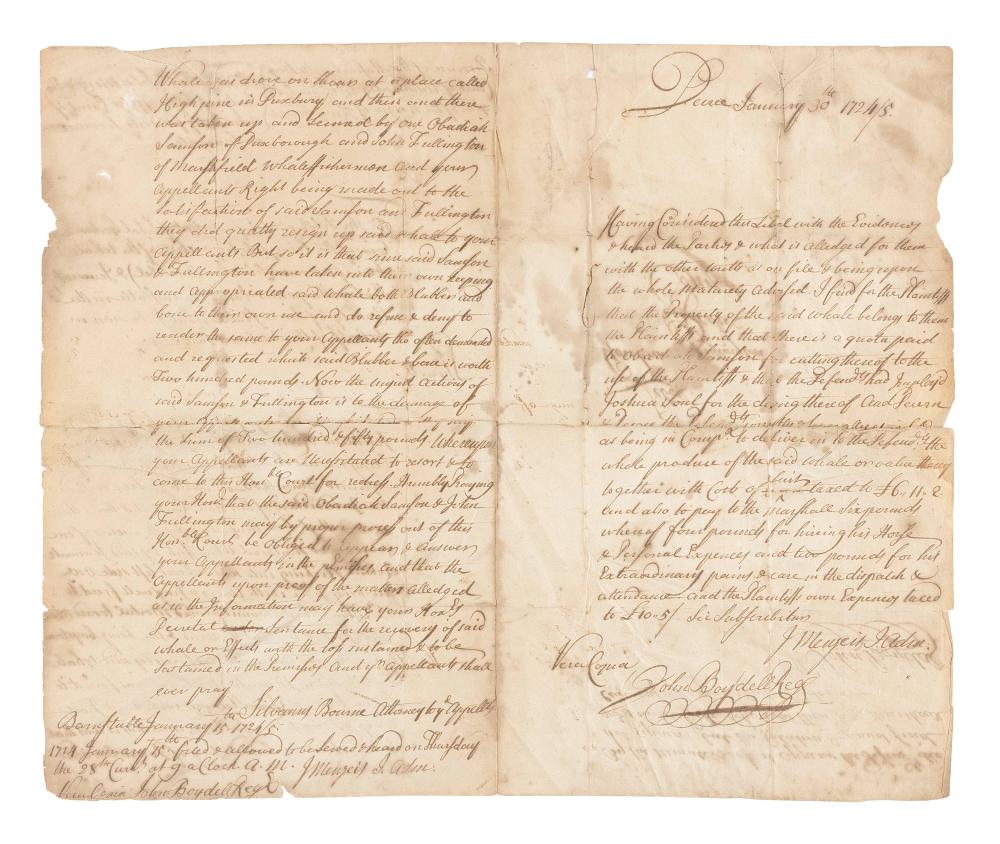 Whale was drove on Shoar at a place called
High pine in Duxbury and then and there
was taken up and Secured by one Obadiah
Samson of Duxborough and John Fullington
of Marshfield Whale fishermen And your
Appellants Right being made out to the
satisfaction of said Samson and Fullington
they did quietly resign up said whale to your
Appellants But so it is that since said Samson
& Fullington have taken into their own keeping
and appropriated said Whale both Blubber and
bone to their own use and do refuse & deny to
render the same to your Appellants tho often demanded
and requested which said Blubber & bone is worth
Two hundred pounds. Now the unjust Actions of
said Samson & Fullington is to the damage of
your Appellants
the sum of Two hundred & fifty pounds Whereupon
your Appellants are Necessitated to resort & to
come to this Honble Court for redress Humbly Praying
your Honr that the said Obadiah Samson & John
Fullington may by proper process out of this
Honble Court be obliged to Appear & Answer
your Appellants in the premises and that the
Appellants upon proof of the matters Alledged
as in the Information may have your Honrs
Decretal Sentance for the recovery of said
whale or Effects with the loss sustained & to be
Sustained in the premises And yr Appellants shall
ever pray
Silvanus Bourne Attorney to ye Appellts
Barnstable January 15th 1724/5
1724 January 15th filed & allowed to be Served & heard on Thursday
the 28th Currt at 9 a Clock A. M. J Menzeis J. Adm.
Vera Copia John Boydell Regr
Decree January 30th 1724/5.
Having Considered this Libel with the Evidences
& heard the Parties & what is alledged for them
with the other writts as on file & being upon
the whole Maturely Advised. I find for the Plaintiffs
that the Property of the said whale belong to them
the Plaintiffs and that there is a quota paid
to Obadiah Samson for cutting thereof to the
use of the Plaintiffs & that the Defendts had Imployd
Joshua Soul for the doing thereof And Decern
& Decree the Defendts
as being in Compa to deliver in to the Plefendts the
whole produce of the said whale or value thereof
together with Costs of Suit taxed to £6..11..2
and also to pay to the Marshall Six pounds
whereof four pounds for hireing his Horse
& Personal Expences and two pounds for his
Extraordinary pains & care in the dispatch &
attendance and the Plaintiffs own Expences taxed
to £10..5/ Sic Subscribitur
J Menzeis J. Adm.
Vera Copia
John Boydell Regr